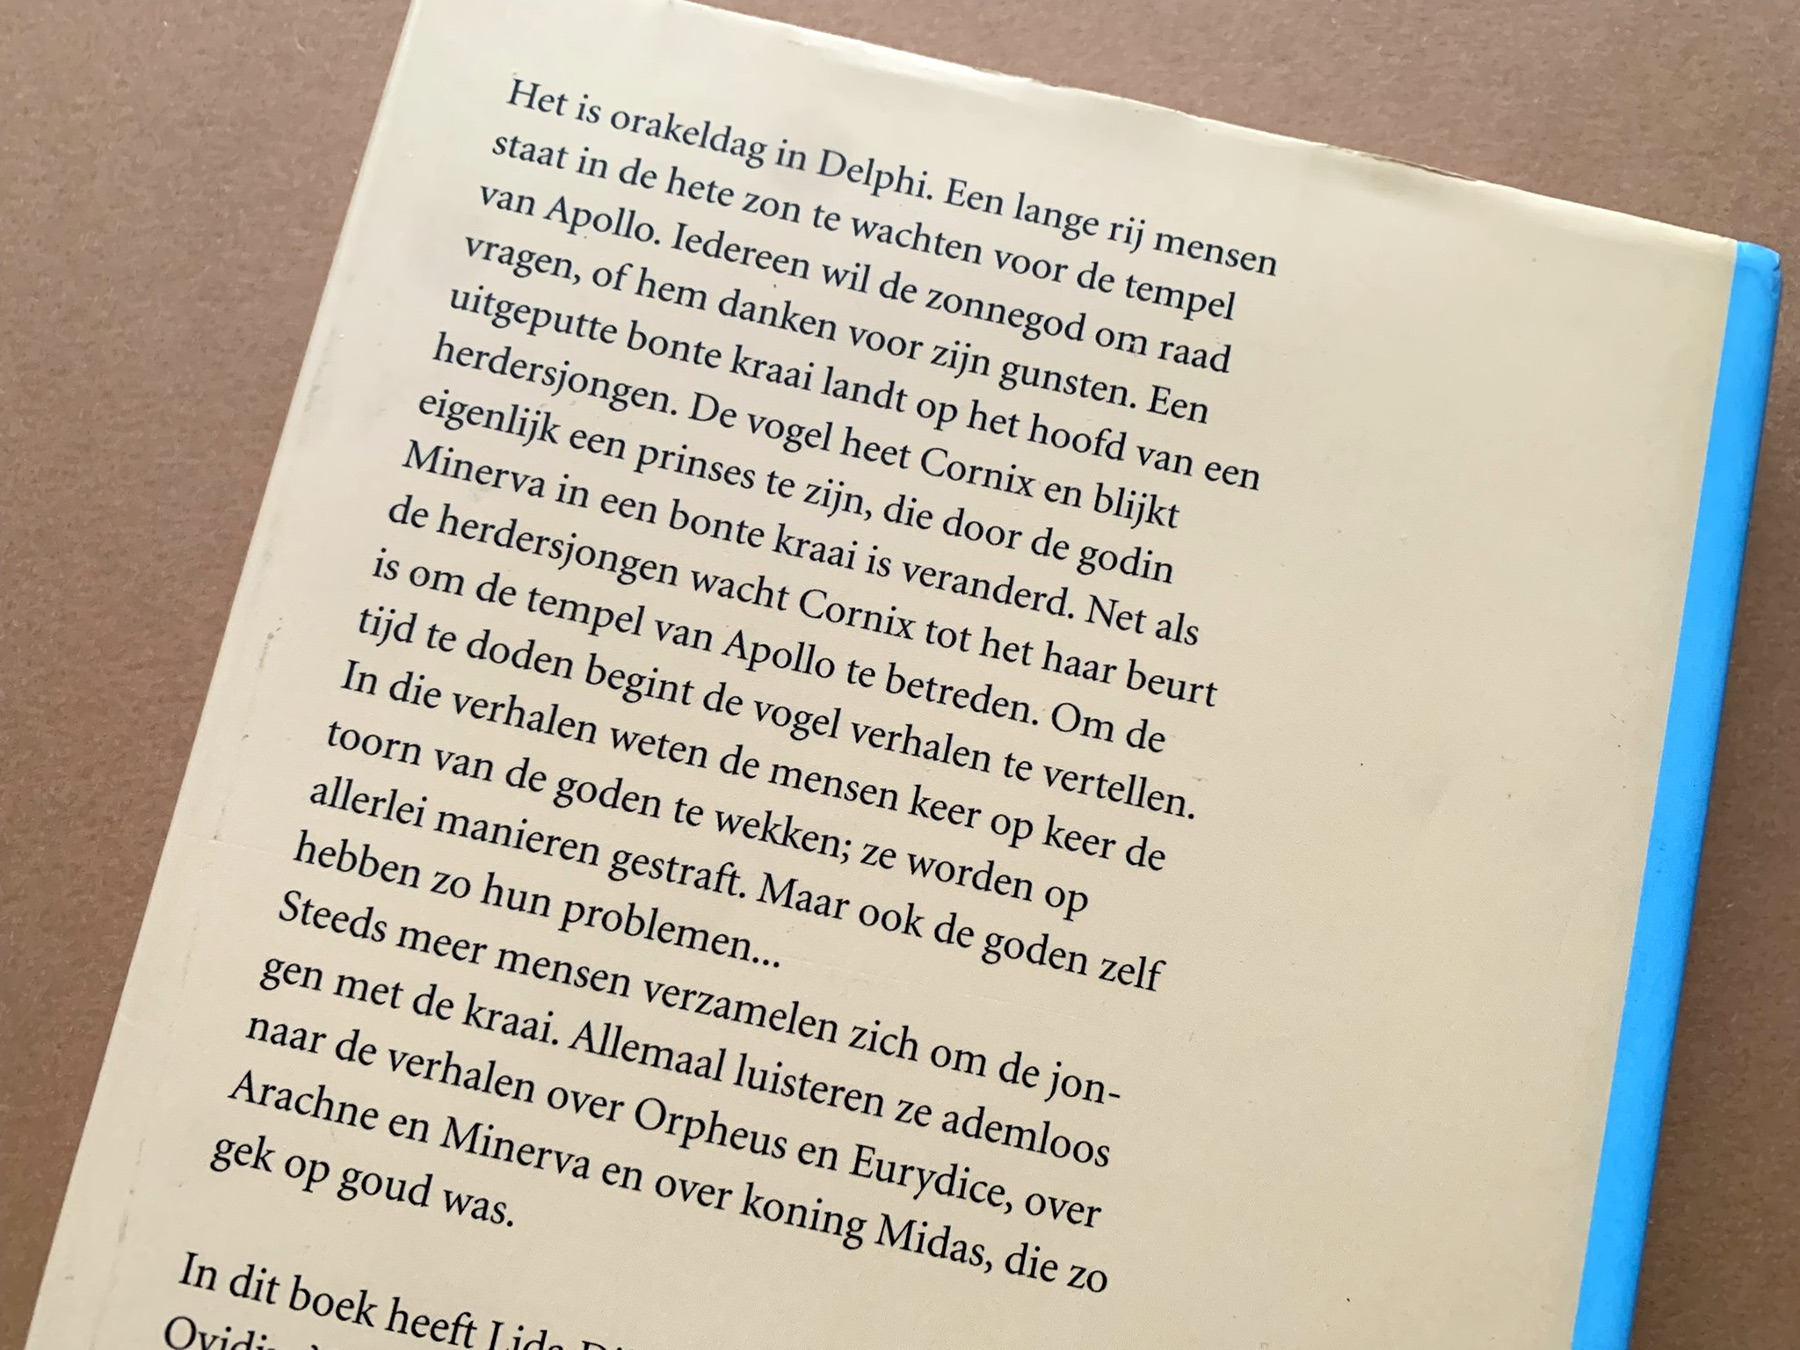 Het is orakeldag in Delphi. Een lange rij mensen
staat in de hete zon te wachten voor de tempel
van Apollo. Iedereen wil de zonnegod om raad
vragen, of hem danken voor zijn gunsten. Een
uitgeputte bonte kraai landt op het hoofd van een
herdersjongen. De vogel heet Cornix en blijkt
eigenlijk een prinses te zijn, die door de godin
Minerva in een bonte kraai is veranderd. Net als
de herdersjongen wacht Cornix tot het haar beurt
is om de tempel van Apollo te betreden. Om de
tijd te doden begint de vogel verhalen te vertellen.
In die verhalen weten de mensen keer op keer de
toorn van de goden te wekken; ze worden op
allerlei manieren gestraft. Maar ook de goden zelf
hebben zo hun problemen...
Steeds meer mensen verzamelen zich om de jon-
gen met de kraai. Allemaal luisteren ze ademloos
naar de verhalen over Orpheus en Eurydice, over
Arachne en Minerva en over koning Midas, die zo
gek op goud was.
In dit boek heeft